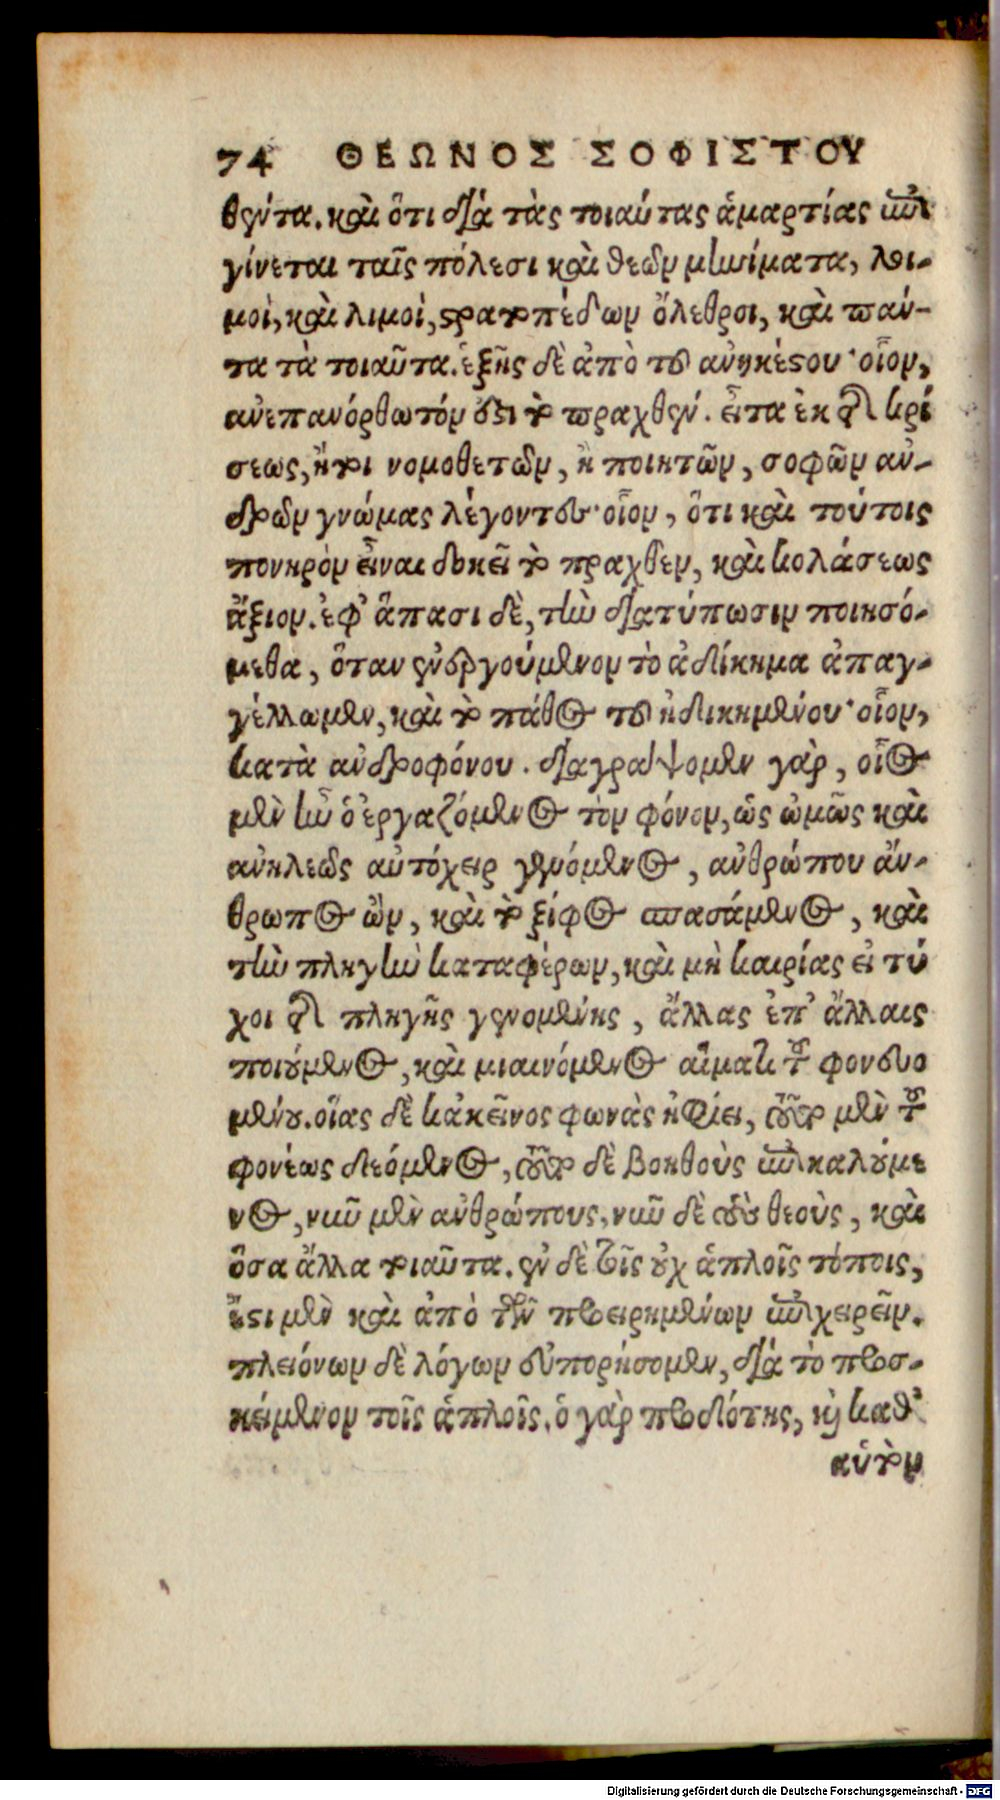 74 ΘΕΩΝΟΣ ΣΟΦΙΣΤΟΥ
θέντα. καὶ ὅτι διὰ τὰς τοιαύτας ἁμαρτίας ἐπι
γίνεται ταῖς πόλεσι καὶ θεῶν μηνίματα, λοι-
μοὶ, καὶ λιμοὶ, στρατοπέδων ὄλεθροι, καὶ πάν-
τα τὰ τοιαῦτα. ἑξῆς δὲ ἀπὸ τοῦ ἀνηκέστου· οἷον,
ἀνεπανόρθωτόν ἐστι τὸ πραχθέν. εἶτα ἐκ τῆς κρί
σεως, ἤτοι νομοθετῶν, ἢ ποιητῶν, σοφῶν ἀν-
δρῶν γνώμας λέγοντες· οἷον, ὅτι καὶ τούτοις
πονηρὸν εἶναι δοκεῖ τὸ πραχθεν, καὶ κολάσεως
ἄξιον. ἐφ' ἅπασι δὲ, τὴν διατύπωσιν ποιησό-
μεθα, ὅταν ἐνεργούμενον τὸ ἀδίκημα ἀπαγ-
γέλλωμεν, καὶ τὸ πάθος τοῦ ἠδικημένου· οἷον,
κατὰ ἀνδροφόνου. διαγράψομεν γὰρ, οἷος
μὲν ἦν ὁ ἐργαζόμενος τὸν φόνον, ὡς ὠμῶς καὶ
ἀνηλεῶς αὐτόχειρ γενόμενος, ἀνθρώπου ἄν-
θρωπος ὢν, καὶ τὸ ξίφος σπασάμενος, καὶ
τὴν πληγὴν καταφέρων, καὶ μὴ καιρίας εἰ τύ
χοι τῆς πληγῆς γενομένης, ἄλλας ἐπ' ἄλλαις
ποιούμενος, καὶ μιαινόμενος αἵματι τοῦ φονευο
μένου. οἵας δὲ κἀκεῖνος φωνὰς ἠφίει, τοῦτο μὲν τοῦ
φονέως δεόμενος, τοῦτο δὲ βοηθοὺς ἐπικαλούμε
νος, νῦν μὲν ἀνθρώπους, νῦν δὲ τοὺς θεοὺς, καὶ
ὅσα ἄλλα τοιαῦτα. ἐν δὲ τοῖς οὐχ ἁπλοῖς τόποις,
ἔστι μὲν καὶ ἀπὸ τῶν προειρημένων ἐπιχειρεῖν.
πλειόνων δὲ λόγων εὐπορήσομεν, διὰ τὸ προσ-
κείμενον τοῖς ἁπλοῖς. ὁ γὰρ προδότης, καὶ καθ'
αὑτὸν
Digitalisierung gefördert durch die Deutsche Forschungsgemeinschaft - DFG